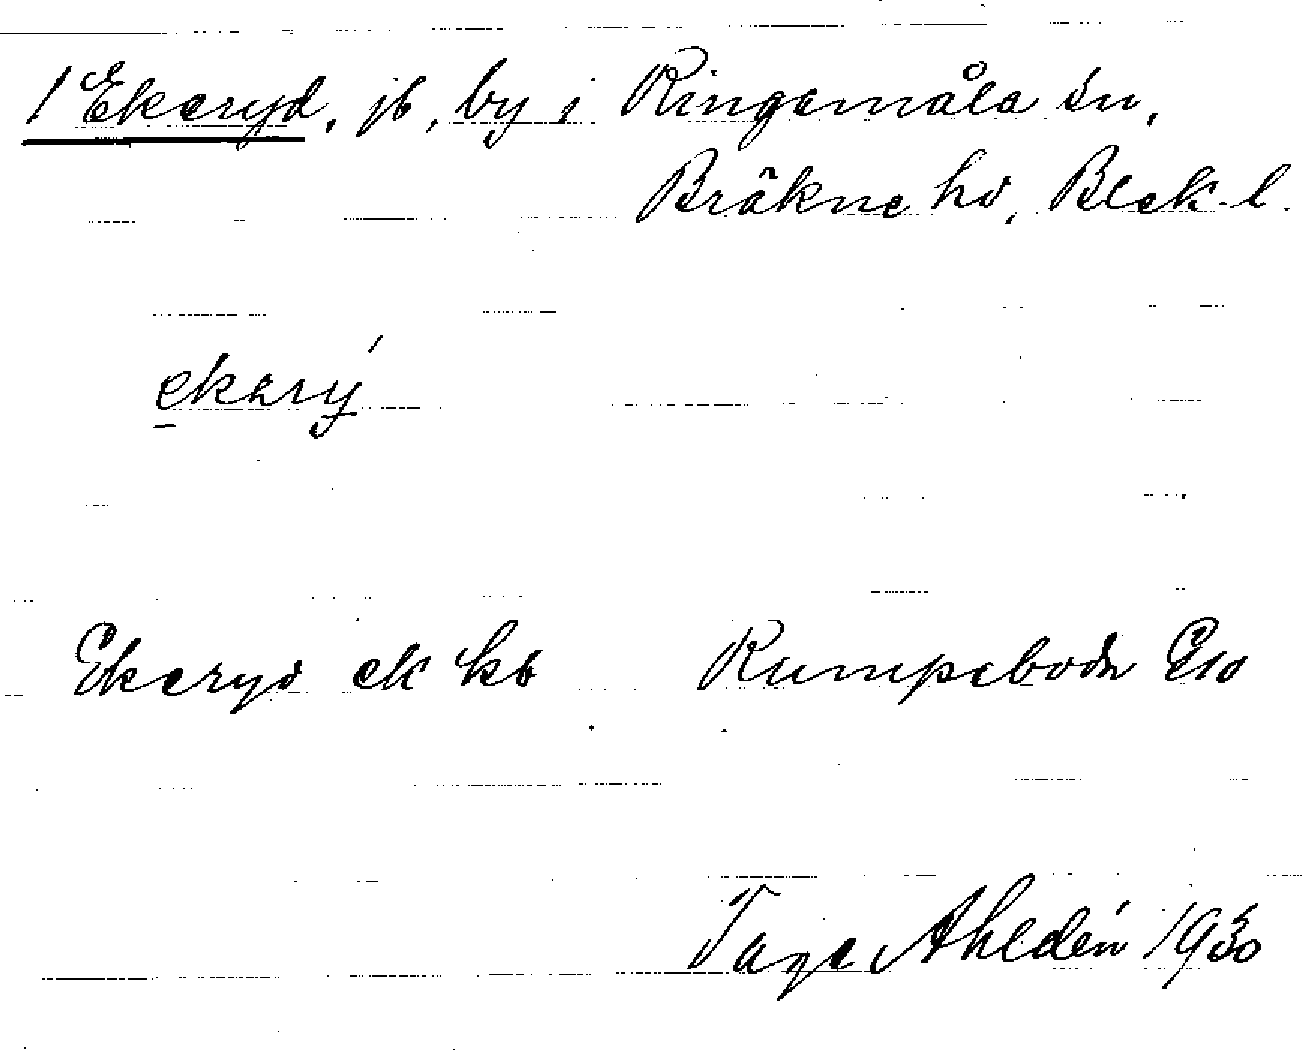 1 Ekeryd, jb, by i Ringamåla sn,
Bräkne hd, Blek. l.
ekarý
Ekeryd ek kb Rumpeboda Eso
Tage Ahldén 1930